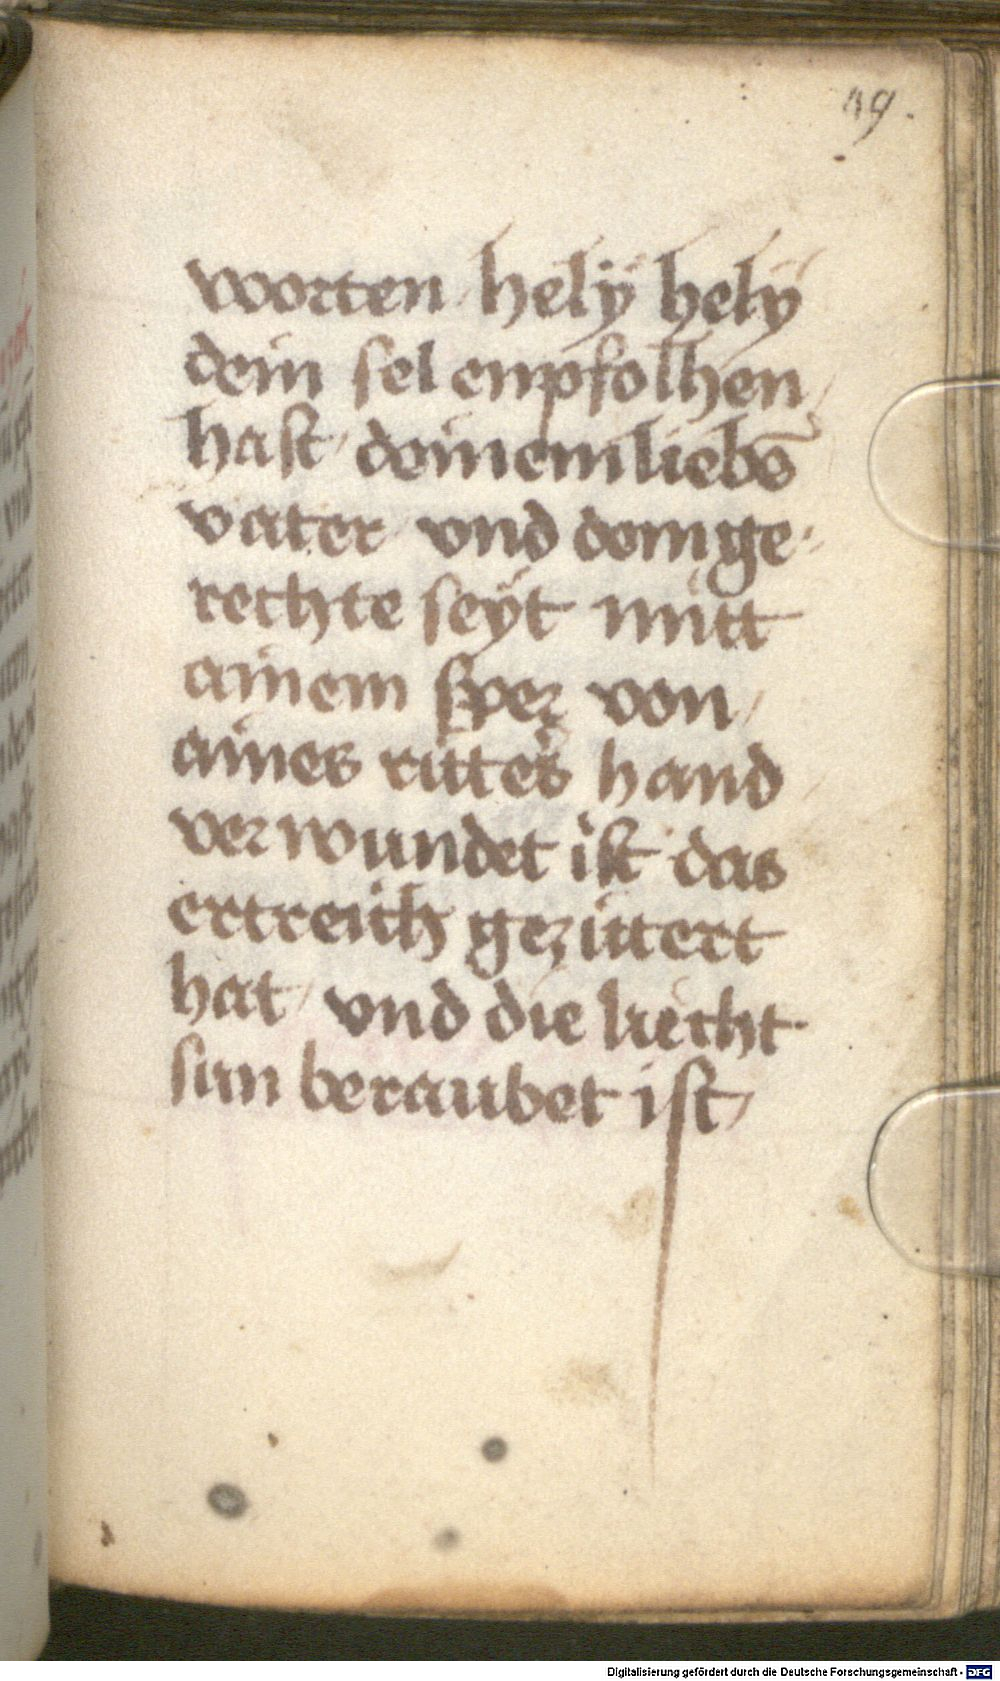 49.
worten hely hely
dein sel enpfolhen
hast deinem liebē
vater vnd dein ge
rechte seyt mitt
ainem sper von
aines ritters hand
verwundet ist das
ertreich gezittert
hat vnd die liecht
sun beraubet ist
Digitalisierung gefördert durch die Deutsche Forschungsgemeinschaft - DFG